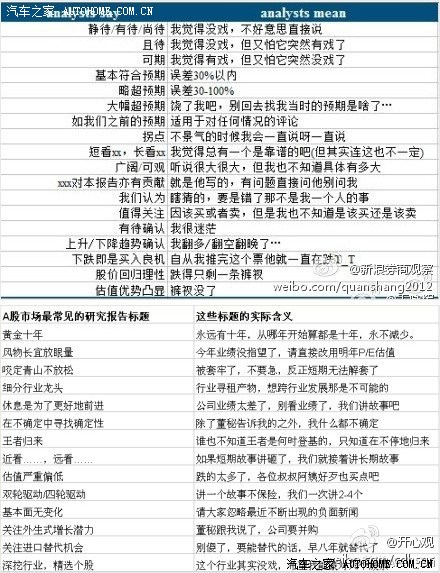 汽车之家 AUTOHOME.COM.CN
analysts say analysts mean
静待/有待/尚待 我觉得没戏，不好意思直接说
且待 我觉得没戏，但又怕它突然有戏了
可期 我觉得有戏，但又怕它突然没戏了
基本符合预期 误差30%以内
略超预期 误差30-100%
大幅超预期 饶了我吧，别回去找我当时的预期是啥了…
如我们之前的预期 适用于对任何情况的评论
拐点 不景气的时候我会一直说呀一直说
短看xx，长看xx 我觉得总有一个是靠谱的吧(但其实连这也不一定)
广阔/可观 听说很大很大，但我也不知道具体有多大
xxx对本报告亦有贡献 就是他写的，有问题直接问他别问我
我们认为 瞎猜的，要是错了那不是我一个人的事
值得关注 因该买或者卖，但是我也不知道是该买还是该卖
有待确认 我很迷茫
上升/下降趋势确认 我翻多/翻空翻晚了…
下跌即是买入良机 自从我推完这个票他就一直在跌T_T
股价回归理性 跌得只剩一条裤衩
估值优势凸显 裤衩没了
@新浪券商观察
weibo.com/quanshang2012
A股市场最常见的研究报告标题 这些标题的实际含义
黄金十年 永远有十年，从哪年开始算都是十年，永不减少。
风物长宜放眼量 今年业绩没指望了，请直接改用明年P/E估值
咬定青山不放松 被套牢了，不要急，反正短期无法解套了
细分行业龙头 行业寻租产物，想跨行业发展那是不可能的
休息是为了更好地前进 公司业绩太差了，别看业绩了，我们讲故事吧
在不确定中寻找确定性 除了董秘告诉我的之外，我什么都不确定
王者归来 谁也不知道王者是何时登基的，只知道在不停地归来
近看……，远看…… 如果短期故事讲砸了，我们就接着讲长期故事
估值严重偏低 跌的太多了，各位叔叔阿姨好歹也买点吧
双轮驱动/四轮驱动 讲一个故事不保险，我们一次讲2-4个
基本面无变化 请大家忽略最近不断出现的负面新闻
关注外生式增长潜力 董秘跟我说了，公司要并购
关注进口替代机会 别傻了，要能替代的话，早八年就替代了
深挖行业，精选个股 这个行业其实没戏，
@开心观
汽车之家 AUTOHOME.COM.CN